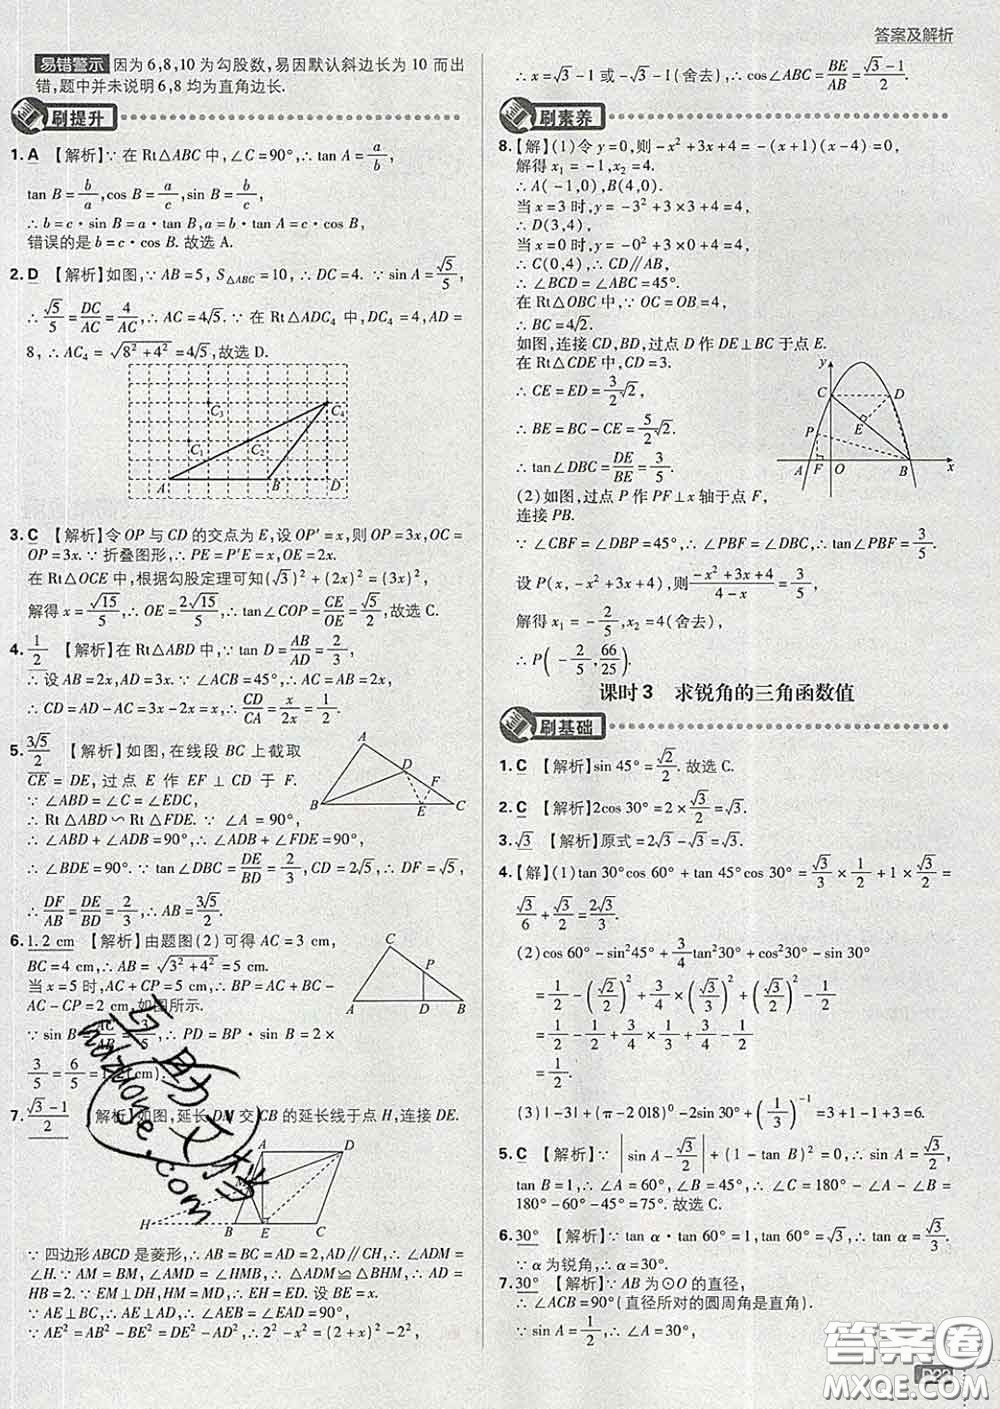 答案及解析
易错警示 因为 6,8,10 为勾股数,易因默认斜边长为 10 而出
错,题中并未说明 6,8 均为直角边长.
刷提升
1. A 【解析】∵ 在 Rt△ABC 中,∠C=90°,∴ tan A=a/b,
tan B=b/a,cos B=a/c,sin B=b/c,
∴ b=c·sin B=a·tan B,a=b·tan A=c·cos B,
错误的是 b=c·cos B.故选 A.
2. D 【解析】如图,∵ AB=5, S△ABC=10,∴ DC=4. ∵ sin A=√5/5,
∴ √5/5=DC/AC=4/AC,∴ AC=4√5. ∵ 在 Rt△ADC₄ 中,DC₄=4,AD=
8,∴ AC₄=√(8²+4²)=4√5,故选 D.
C₃ C₄
C₁ C₂
A B D
3. C 【解析】令 OP 与 CD 的交点为 E,设 OP'=x,则 OP=3x,OC=
OP=3x.∵ 折叠图形,∴ PE=P'E=x,OE=2x.
在 Rt△OCE 中,根据勾股定理可知(√3)²+(2x)²=(3x)²,
解得 x=√15/5,∴ OE=2√15/5,∴ tan∠COP=CE/OE=√5/2,故选 C.
4. 1/2 【解析】在 Rt△ABD 中,∵ tan D=AB/AD=2/3,
∴ 设 AB=2x,AD=3x.∵ ∠ACB=45°,
∴ AC=AB=2x,∴ CD=3x-2x=x,∴ CD/CA=x/2x=1/2.
5. 3√5/2 【解析】如图,在线段 BC 上截取
CE=DE,过点 E 作 EF⊥CD 于 F.
∵ ∠ABD=∠C=∠EDC,
∴ Rt△ABD∽Rt△FDE. ∵ ∠A=90°,
∴ ∠ABD+∠ADB=90°,∴ ∠EDF+∠ADB=90°,
∴ ∠BDE=90°.∵ tan∠DBC=DE/BD=2/3,CD=2√5,∴ DF=√5,
∴ DF/AB=DE/BD=2/3,∴ AB=3√5/2.
A D F B E C
6. 1.2 cm 【解析】由题图(2)可得 AC=3 cm,
BC=4 cm,∴ AB=√(3²+4²)=5 cm.
当 x=5 时,AC+CP=5 cm,∴ BP=AC+BC-
AC-CP=2 cm,如图所示.
∵ sin B=AC/AB=3/5,∴ PD=BP·sin B=2×
3/5=6/5=1.2(cm).
C P A D B
7. (√3-1)/2 【解析】如图,延长 DM 交 CB 的延长线于点 H,连接 DE.
A D M H B E C
∵ 四边形 ABCD 是菱形,∴ AB=BC=AD=2,AD∥CH,∴ ∠ADM=
∠H.∵ AM=BM,∠AMD=∠HMB,∴ △ADM≌△BHM,∴ AD=
HB=2. ∵ EM⊥DH,∴ EH=ED. 设 BE=x.
∵ AE⊥BC,∴ AE⊥AD,∴ ∠AEB=∠EAD=90°.
∵ AE²=AB²-BE²=DE²-AD²,∴ 2²-x²=(2+x)²-2²,
∴ x=√3-1 或-√3-1(舍去),∴ cos∠ABC=BE/AB=(√3-1)/2.
刷素养
8.【解】(1)令 y=0,则-x²+3x+4=-(x+1)(x-4)=0,
解得 x₁=-1,x₂=4.
∴ A(-1,0),B(4,0).
当 x=3 时,y=-3²+3×3+4=4,
∴ D(3,4),
当 x=0 时,y=-0²+3×0+4=4,
∴ C(0,4),∴ CD∥AB,
∴ ∠BCD=∠ABC=45°.
在 Rt△OBC 中,∵ OC=OB=4,
∴ BC=4√2.
如图,连接 CD,BD,过点 D 作 DE⊥BC 于点 E.
在 Rt△CDE 中,CD=3.
∴ CE=ED=3/2√2,
∴ BE=BC-CE=5/2√2,
∴ tan∠DBC=DE/BE=3/5.
(2)如图,过点 P 作 PF⊥x 轴于点 F,
连接 PB.
y C D E P A F O B x
∵ ∠CBF=∠DBP=45°,∴ ∠PBF=∠DBC,∴ tan∠PBF=3/5.
设 P(x,-x²+3x+4),则(-x²+3x+4)/(4-x)=3/5,
解得 x₁=-2/5,x₂=4(舍去),
∴ P(-2/5,66/25).
课时 3 求锐角的三角函数值
刷基础
1. C 【解析】sin 45°=√2/2.故选 C.
2. C 【解析】2cos 30°=2×√3/2=√3.
3. √3 【解析】原式=2√3-√3=√3.
4.【解】(1)tan 30°cos 60°+tan 45°cos 30°=√3/3×1/2+1×√3/2=
√3/6+√3/2=2√3/3.
(2)cos 60°-sin²45°+3/4tan²30°+cos²30°-sin 30°
=1/2-(√2/2)²+3/4×(√3/3)²+(√3/2)²-1/2
=1/2-1/2+1/4+3/4-1/2
=1/2.
(3)|-3|+(π-2 018)⁰-2sin 30°+(1/3)⁻¹=3+1-1+3=6.
5. C 【解析】∵ |sin A-√3/2|+(1-tan B)²=0,∴ sin A=√3/2,
tan B=1,∴ ∠A=60°,∠B=45°,∴ ∠C=180°-∠A-∠B=
180°-60°-45°=75°.故选 C.
6. 30° 【解析】∵ tan α·tan 60°=1,tan 60°=√3,∴ tan α=√3/3.
∵ α 为锐角,∴ α=30°.
7. 30° 【解析】∵ AB 为⊙O 的直径,
∴ ∠ACB=90°(直径所对的圆周角是直角).
∵ sin A=1/2,∴ ∠A=30°,
答案圈
MXQE.COM